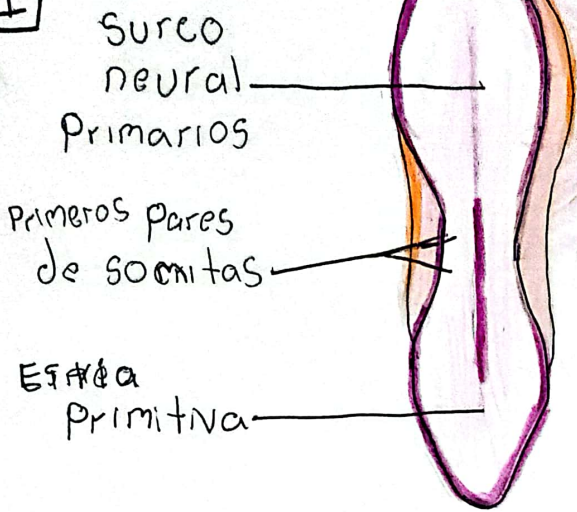 1
Surco
neural
Primarios
Primeros Pares
de somitas
Estría
Primitiva